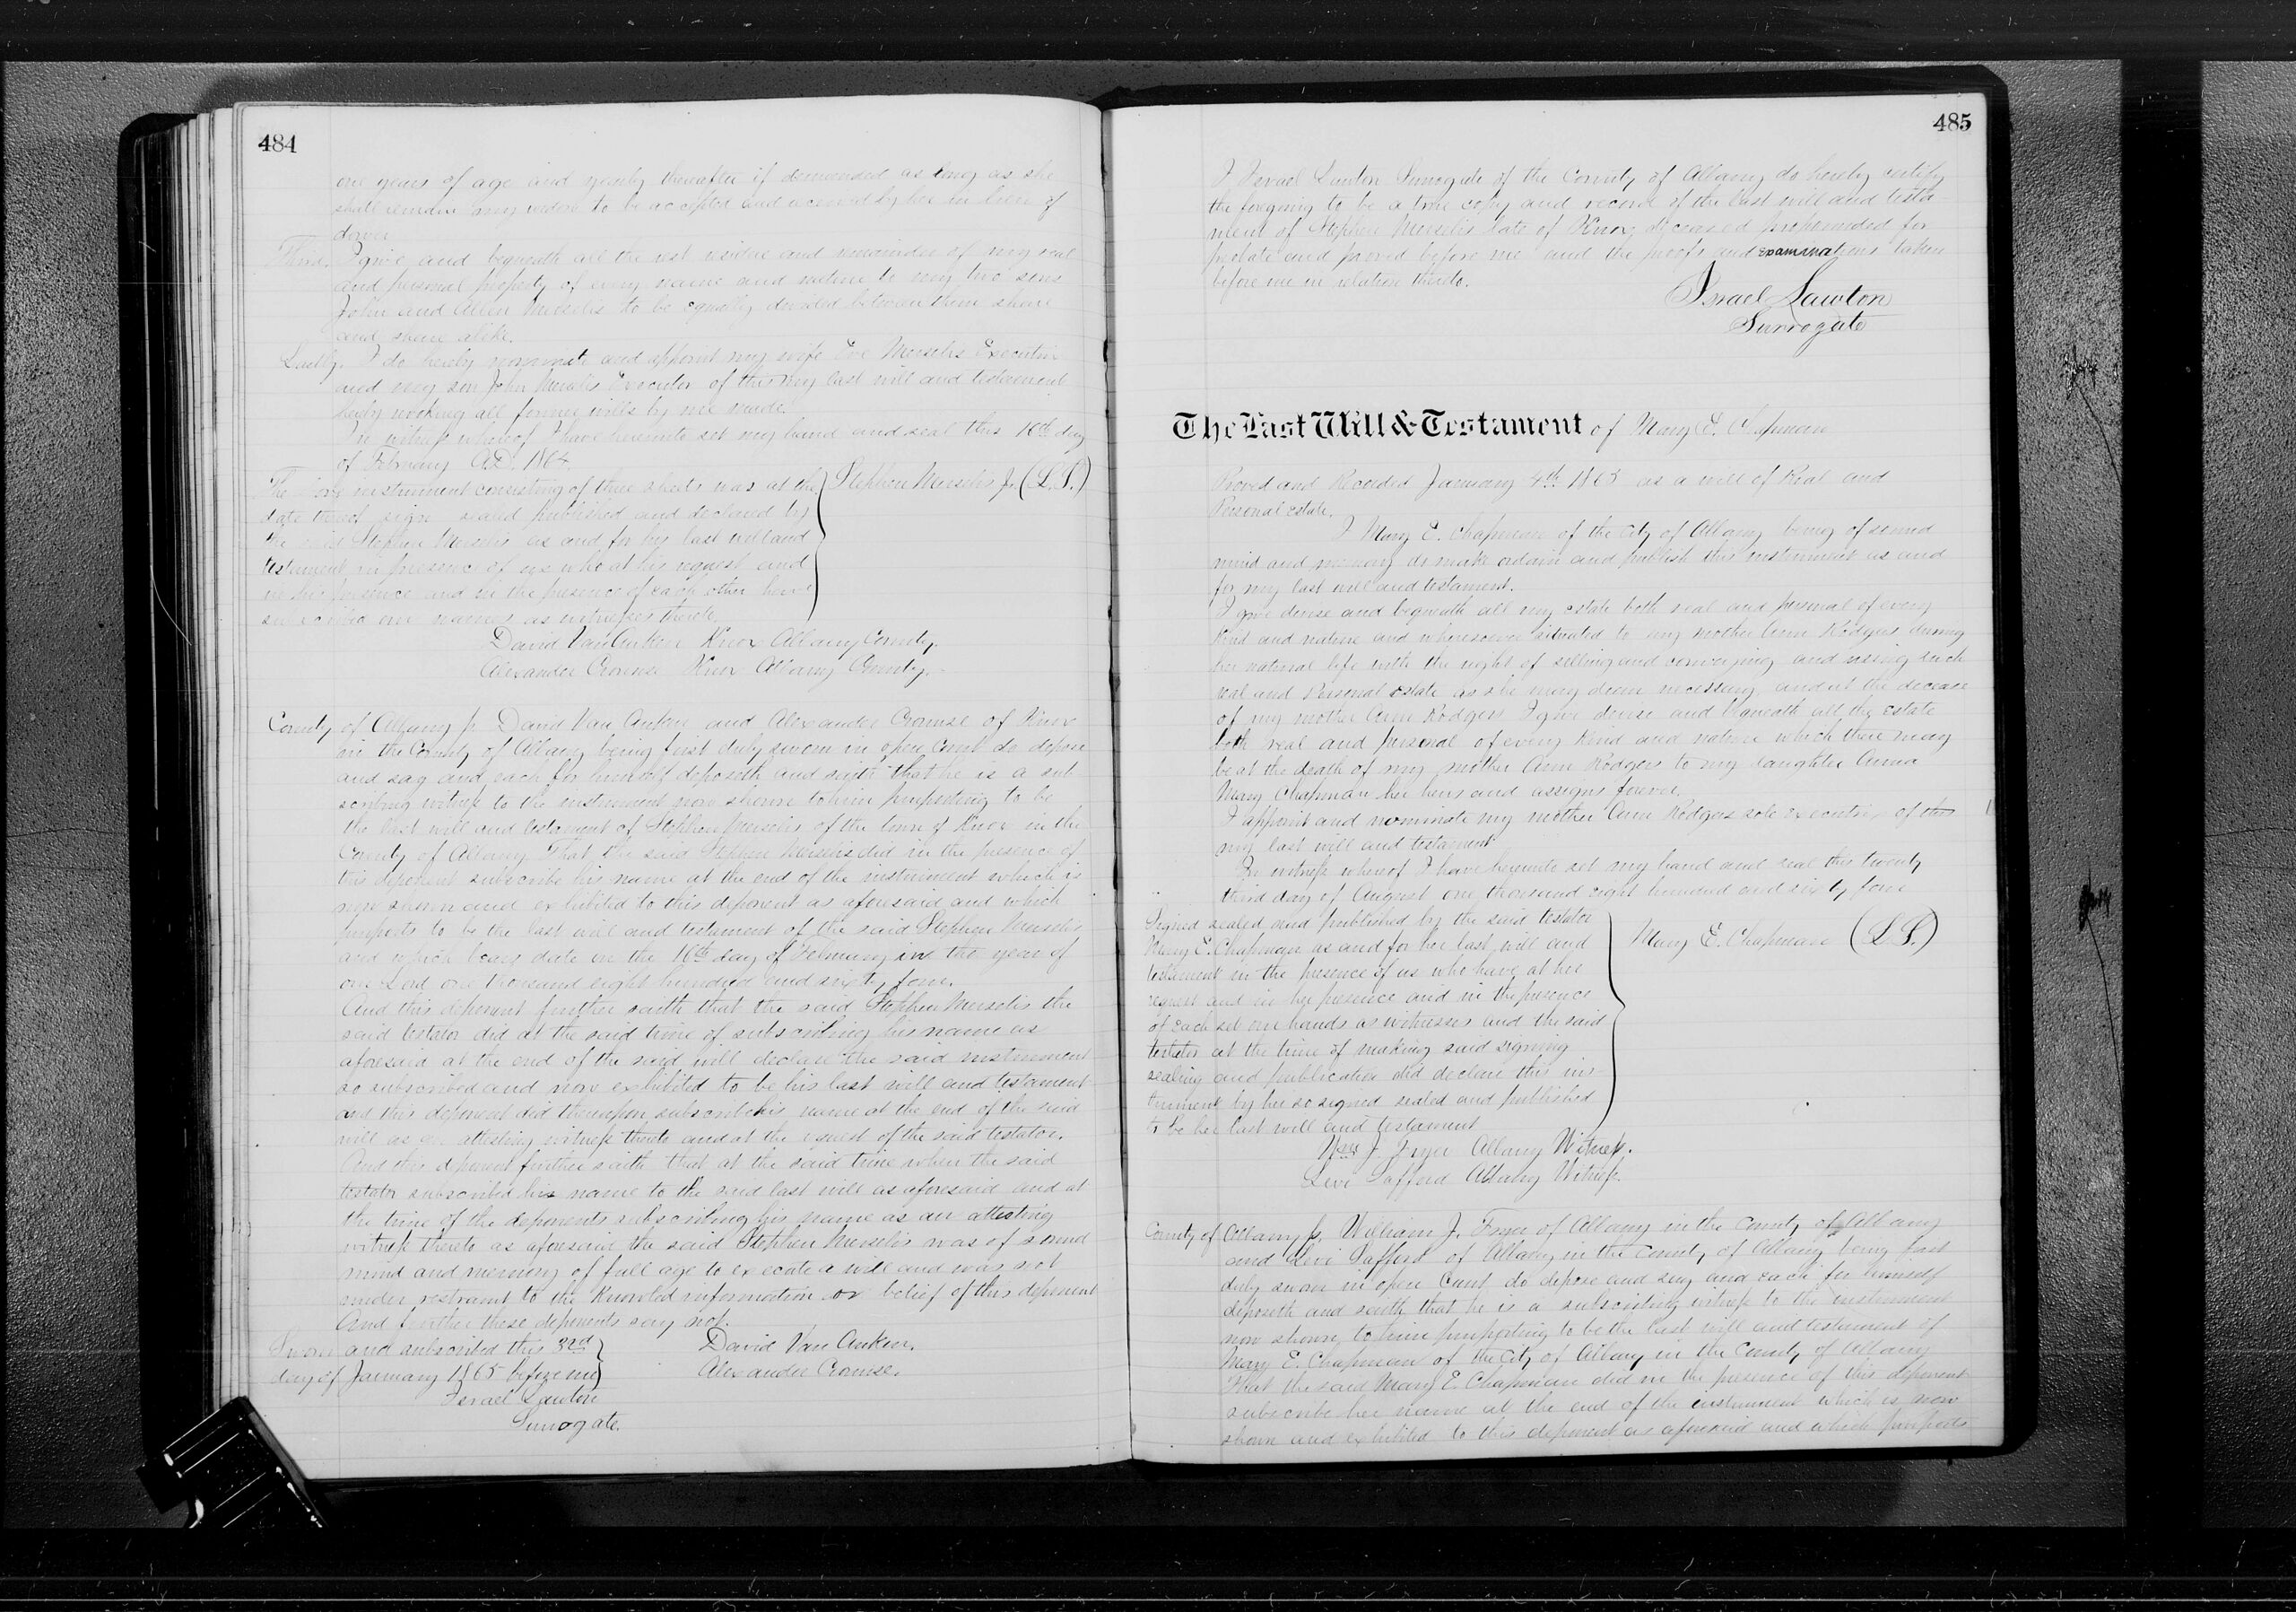 484
one years of age and yearly thereafter if demanded as long as she
shall remain my widow to be accepted and received by her in lieu of
dower
Third. I give and bequeath all the rest residue and remainder of my real
and personal property of every name and nature to my two sons
John and Allen Merselis to be equally divided between them share
and share alike.
Lastly. I do hereby nominate and appoint my wife Eve Merselis Executrix
and my son John Merselis Executor of this my last will and testament
hereby revoking all former wills by me made.
In witness whereof I have hereunto set my hand and seal this 16th day
of February A.D. 1864.
The instrument consisting of three sheets was at the
Stephen Merselis Jr. (L.S.)
date thereof sign sealed published and declared by
the said Stephen Merselis as and for his last will and
testament in presence of us who at his request and
in his presence and in the presence of each other have
subscribed our names as witnesses thereto
David Van Auken Knox Albany County.
Alexander Crounse Knox Albany County.
County of Albany ss. David Van Auken and Alexander Crounse of Knox
in the County of Albany being first duly sworn in open Court do depose
and say and each for himself deposeth and saith that he is a sub
scribing witness to the instrument now shown to him purporting to be
the last will and testament of Stephen Merselis of the town of Knox in the
County of Albany That the said Stephen Merselis did in the presence of
this deponent subscribe his name at the end of the instrument which is
now shown and exhibited to this deponent as aforesaid and which
purports to be the last will and testament of the said Stephen Merselis
and which bears date on the 16th day of February in the year of
our Lord one thousand eight hundred and sixty four.
And this deponent further saith that the said Stephen Merselis the
said testator did at the said time of subscribing his name as
aforesaid at the end of the said will declare the said instrument
so subscribed and now exhibited to be his last will and testament
and this deponent did thereupon subscribe his name at the end of the said
will as an attesting witness thereto and at the request of the said testator.
And this deponent further saith that at the said time when the said
testator subscribed his name to the said last will as aforesaid and at
the time of the deponents subscribing his name as an attesting
witness thereto as aforesaid the said Stephen Merselis was of sound
mind and memory of full age to execute a will and was not
under restraint to the Knowled information or belief of this deponent
And further these deponents say not.
Sworn and subscribed this 3rd
David Van Auken.
day of January 1865 before me
Alexander Crounse.
Israel Lawton
Surrogate.
485
I Israel Lawton Surrogate of the County of Albany do hereby certify
the foregoing to be a true copy and record of the last will and testa
ment of Stephen Merselis late of Knox deceased propounded for
probate and proved before me and the proofs and examinations taken
before me in relation thereto.
Israel Lawton
Surrogate
The Last Will & Testament of Mary E. Chapman
Proved and Recorded January 4th 1865 as a will of Real and
Personal estate.
I Mary E. Chapman of the City of Albany being of sound
mind and memory do make ordain and publish this instrument as and
for my last will and testament.
I give devise and bequeath all my estate both real and personal of every
Kind and nature and wheresoever situated to my mother Ann Rodgers during
her natural life with the right of selling and conveying and using such
real and Personal Estate as she may deem necessary and at the decease
of my mother Ann Rodgers I give devise and bequeath all the estate
both real and personal of every Kind and nature which there may
be at the death of my mother Ann Rodgers to my daughter Anna
Mary Chapman her heirs and assigns forever.
I appoint and nominate my mother Ann Rodgers sole executrix of this
my last will and testament
In witness whereof I have hereunto set my hand and seal this twenty
third day of August one thousand eight hundred and sixty four
Signed sealed and published by the said testator
Mary E. Chapman as and for her last will and
Mary E. Chapman (L.S.)
testament in the presence of us who have at her
request and in her presence and in the presence
of each set our hands as witnesses and the said
testator at the time of making said signing
sealing and publication did declare this ins
trument by her so signed sealed and published
to be her last will and testament
Wm J. Fryer Albany Witness.
Levi Safford Albany Witness.
County of Albany ss. William J. Fryer of Albany in the County of Albany
and Levi Safford of Albany in the County of Albany being first
duly sworn in open Court do depose and say and each for himself
deposeth and saith that he is a subscribing witness to the instrument
now shown to him purporting to be the last will and testament of
Mary E. Chapman of the City of Albany in the County of Albany
That the said Mary E. Chapman did in the presence of this deponent
subscribe her name at the end of the instrument which is now
shown and exhibited to this deponent as aforesaid and which purports